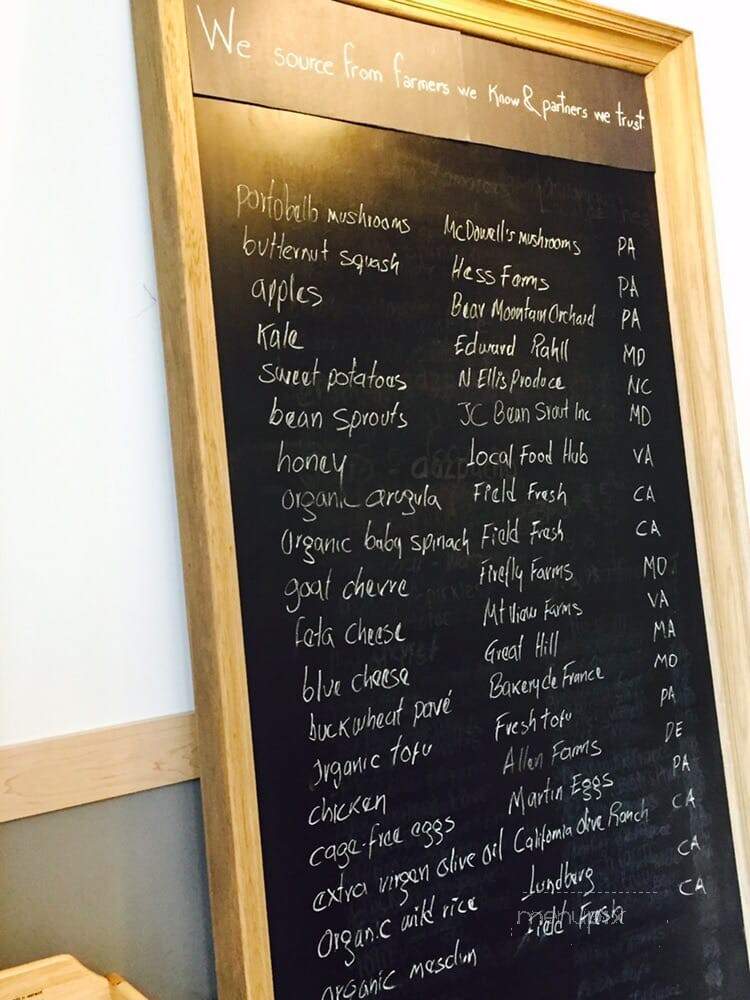 We source from farmers we Know & partners we trust
portobello mushrooms McDowell's mushrooms PA
butternut squash Hess Farms PA
apples Bear Mountain Orchard PA
Kale Edward Rahll MD
sweet potatoes N Ellis Produce NC
bean sprouts JC Bean Srout Inc MD
honey Local Food Hub VA
organic arugula Field Fresh CA
Organic baby spinach Field Fresh CA
goat chevre Firefly Farms MD
feta cheese Mt View Farms VA
blue cheese Great Hill MA
buckwheat pavé Bakery de France MD
Organic tofu Fresh tofu PA
chicken Allen Farms DE
cage-free eggs Martin Eggs PA
extra virgen olive oil California Olive Ranch CA
Organic wild rice Lundberg CA
organic mesclun Field Fresh CA
menupix